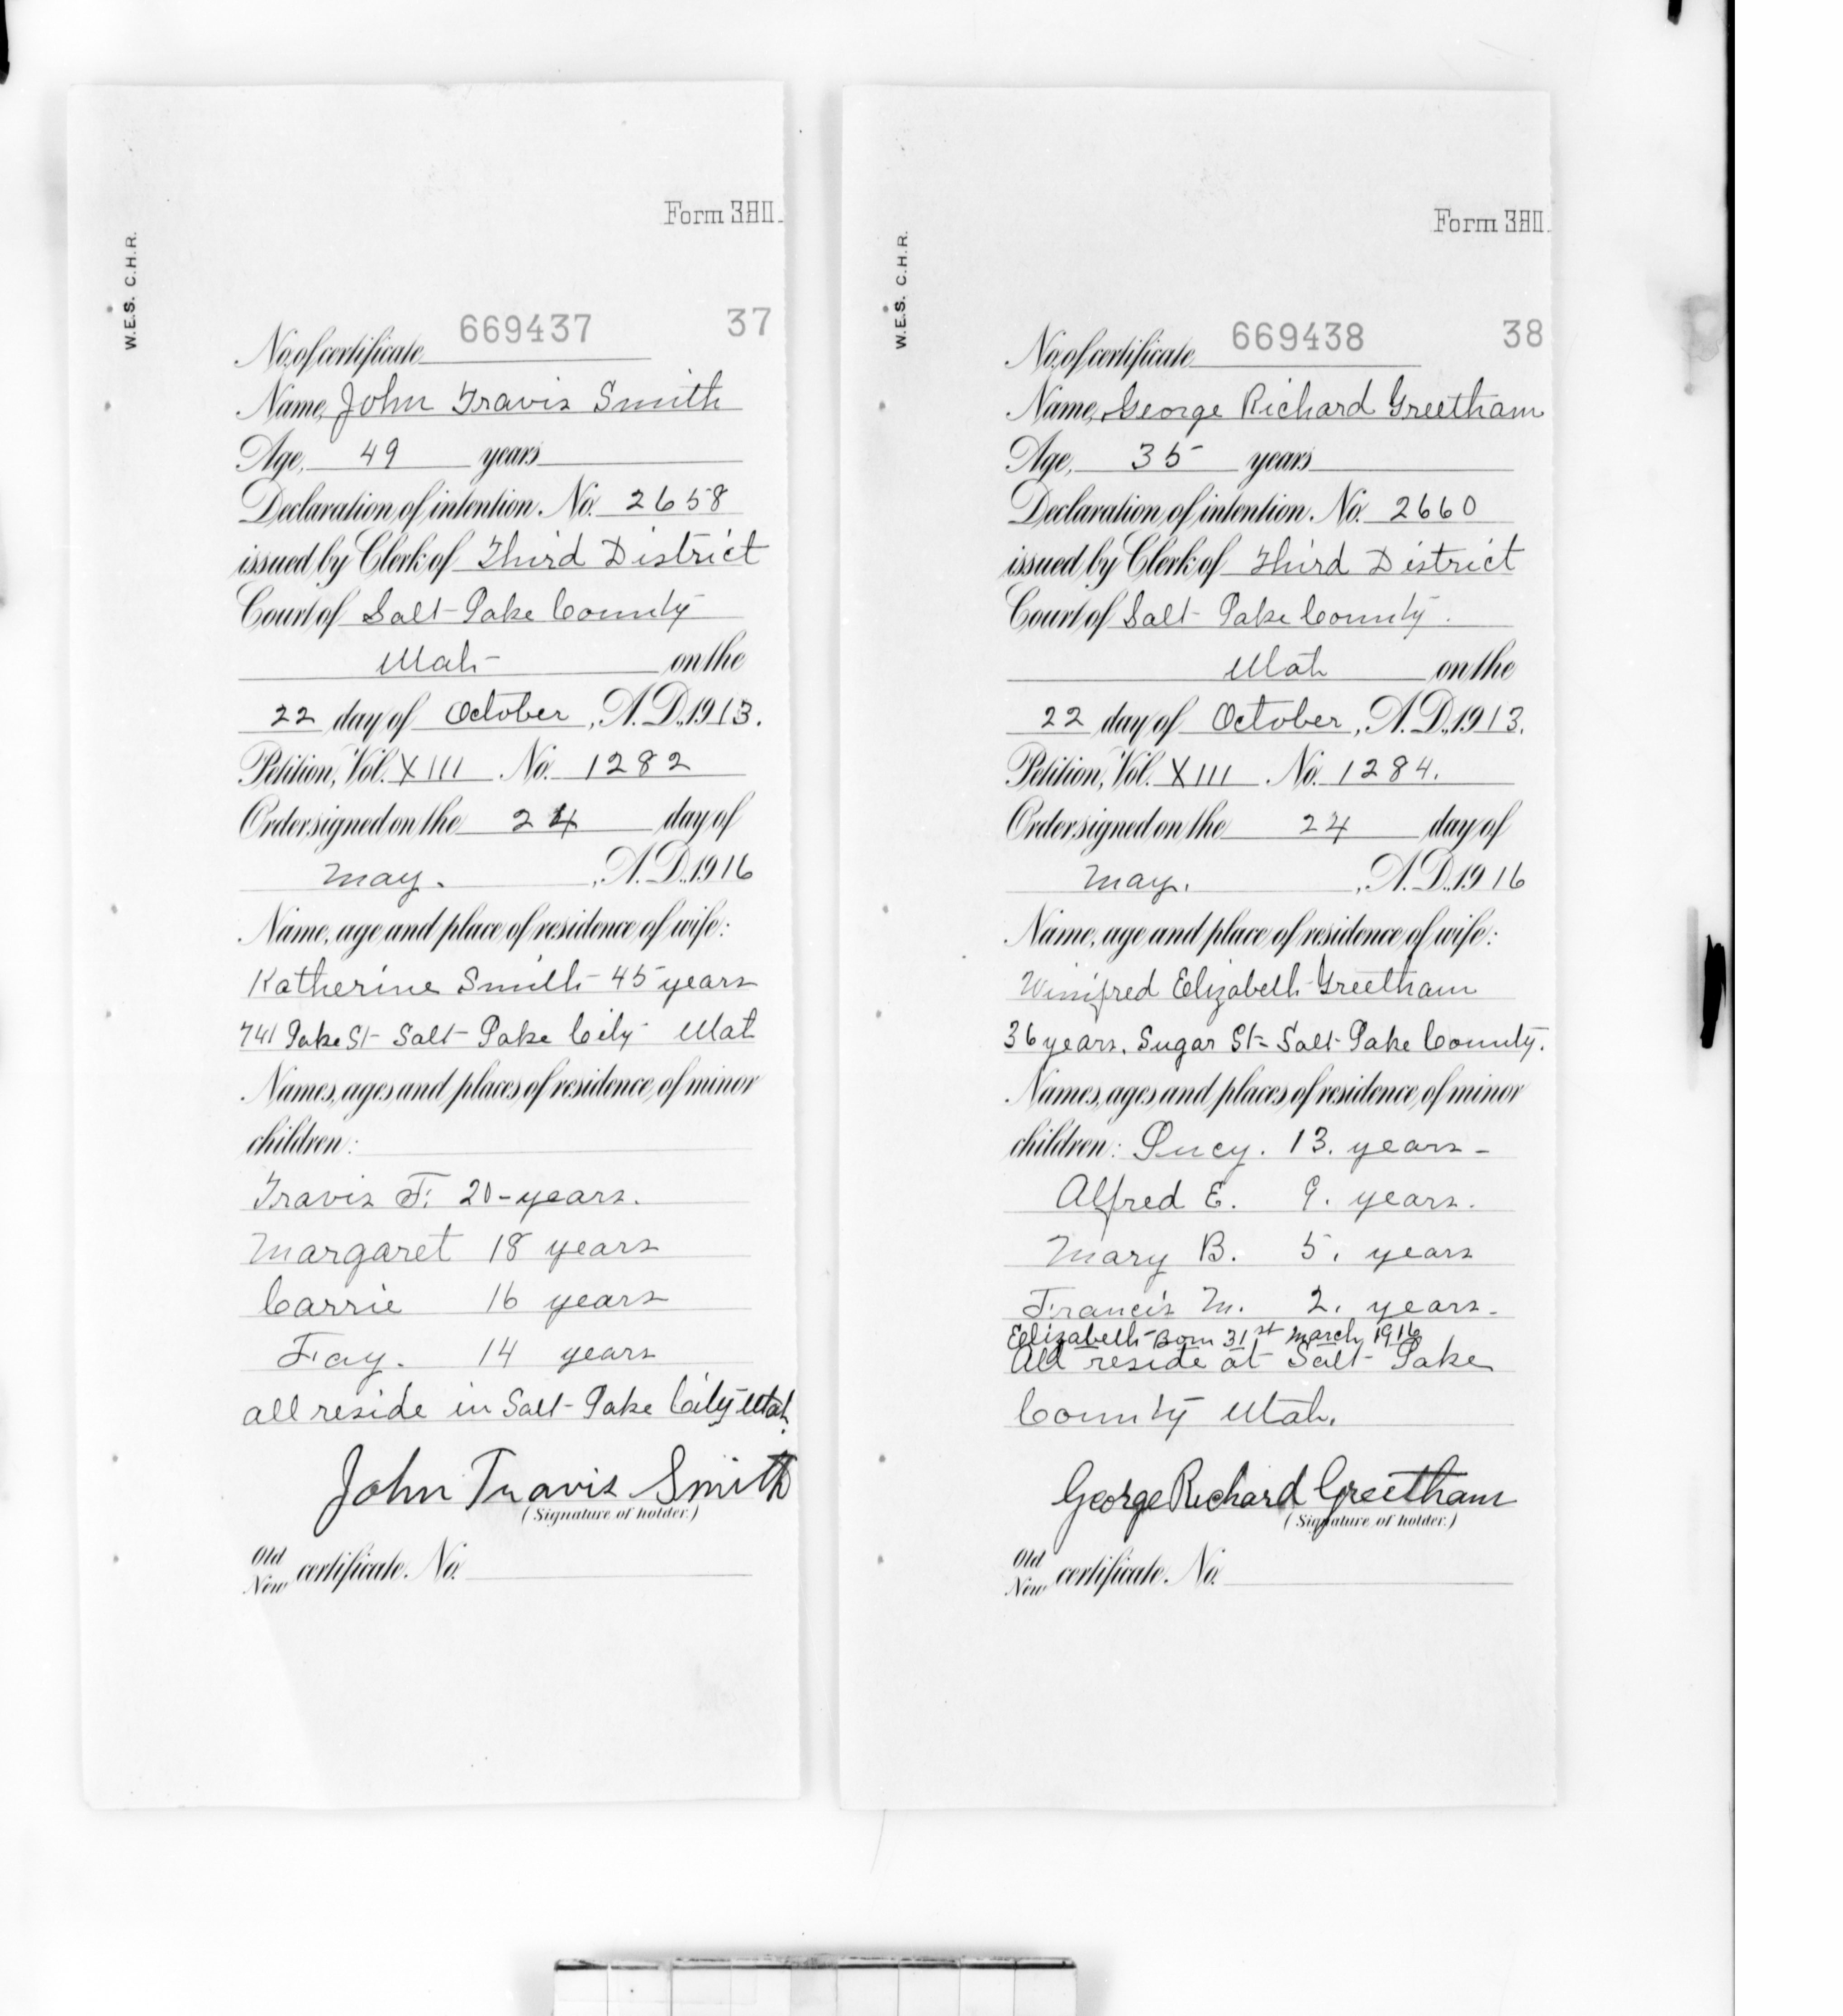 Form 380.
W.E.S. C.H.R.
No. of certificate 669437 37
Name, John Travis Smith
Age, 49 years
Declaration of intention. No. 2658
issued by Clerk of Third District
Court of Salt Lake County
Utah on the
22 day of October, A.D. 1913.
Petition, Vol. XIII No. 1282
Order signed on the 24 day of
May. , A.D. 1916
Name, age and place of residence of wife:
Katherine Smith 45 years
741 Lake St Salt Lake City Utah
Names, ages and places of residence of minor
children:
Travis F. 20-years.
Margaret 18 years
Carrie 16 years
Fay. 14 years
all reside in Salt Lake City Utah.
John Travis Smith
(Signature of holder.)
Old
New certificate. No.
Form 380.
W.E.S. C.H.R.
No. of certificate 669438 38
Name, George Richard Greetham
Age, 35 years
Declaration of intention. No. 2660
issued by Clerk of Third District
Court of Salt Lake County.
Utah on the
22 day of October, A.D. 1913.
Petition, Vol. XIII No. 1284.
Order signed on the 24 day of
May. , A.D. 1916
Name, age and place of residence of wife:
Winifred Elizabeth Greetham
36 years. Sugar St= Salt Lake County.
Names, ages and places of residence of minor
children: Lucy. 13. years-
Alfred E. 9. years.
Mary B. 5. years
Francis M. 2. years-
Elizabeth Born 31st March 1916
All reside at Salt Lake
County Utah.
George Richard Greetham
(Signature of holder.)
Old
New certificate. No.